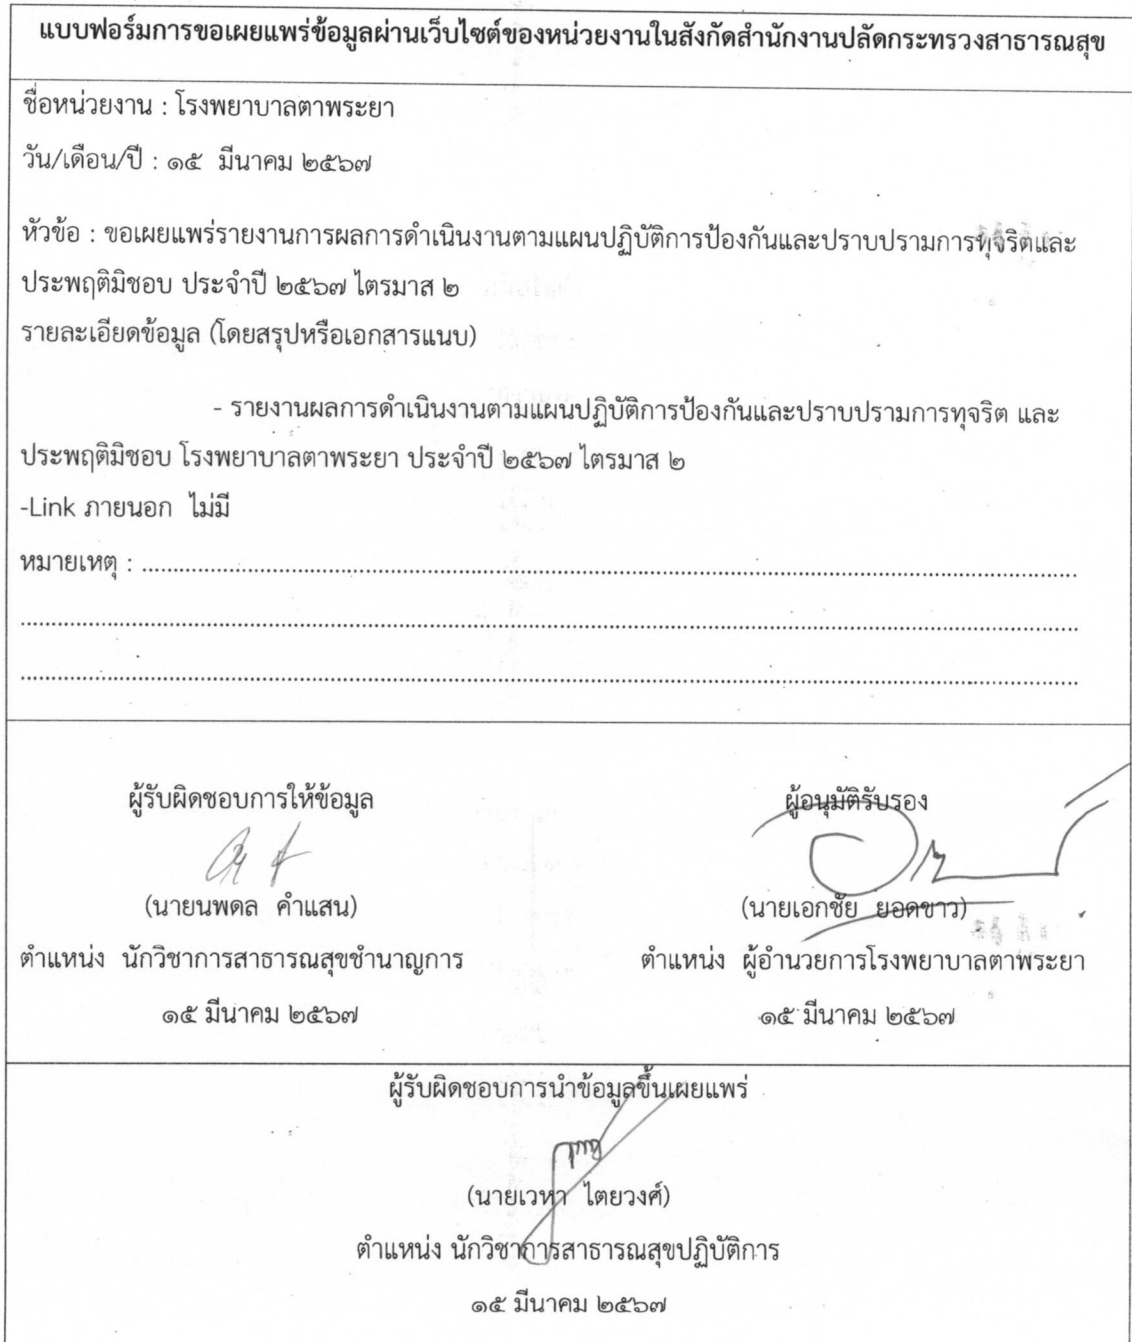 แบบฟอร์มการขอเผยแพร่ข้อมูลผ่านเว็บไซต์ของหน่วยงานในสังกัดสำนักงานปลัดกระทรวงสาธารณสุข
ชื่อหน่วยงาน : โรงพยาบาลตาพระยา
วัน/เดือน/ปี : ๑๕ มีนาคม ๒๕๖๗
หัวข้อ : ขอเผยแพร่รายงานการผลการดำเนินงานตามแผนปฏิบัติการป้องกันและปราบปรามการทุจริตและ
ประพฤติมิชอบ ประจำปี ๒๕๖๗ ไตรมาส ๒
รายละเอียดข้อมูล (โดยสรุปหรือเอกสารแนบ)
- รายงานผลการดำเนินงานตามแผนปฏิบัติการป้องกันและปราบปรามการทุจริต และ
ประพฤติมิชอบ โรงพยาบาลตาพระยา ประจำปี ๒๕๖๗ ไตรมาส ๒
-Link ภายนอก ไม่มี
หมายเหตุ : ..........................................................................................
..........................................................................................
..........................................................................................
ผู้รับผิดชอบการให้ข้อมูล
(นายนพดล คำแสน)
ตำแหน่ง นักวิชาการสาธารณสุขชำนาญการ
๑๕ มีนาคม ๒๕๖๗
ผู้อนุมัติรับรอง
(นายเอกชัย ยอดขาว)
ตำแหน่ง ผู้อำนวยการโรงพยาบาลตาพระยา
๑๕ มีนาคม ๒๕๖๗
ผู้รับผิดชอบการนำข้อมูลขึ้นเผยแพร่
(นายเวหา ไตยวงศ์)
ตำแหน่ง นักวิชาการสาธารณสุขปฏิบัติการ
๑๕ มีนาคม ๒๕๖๗